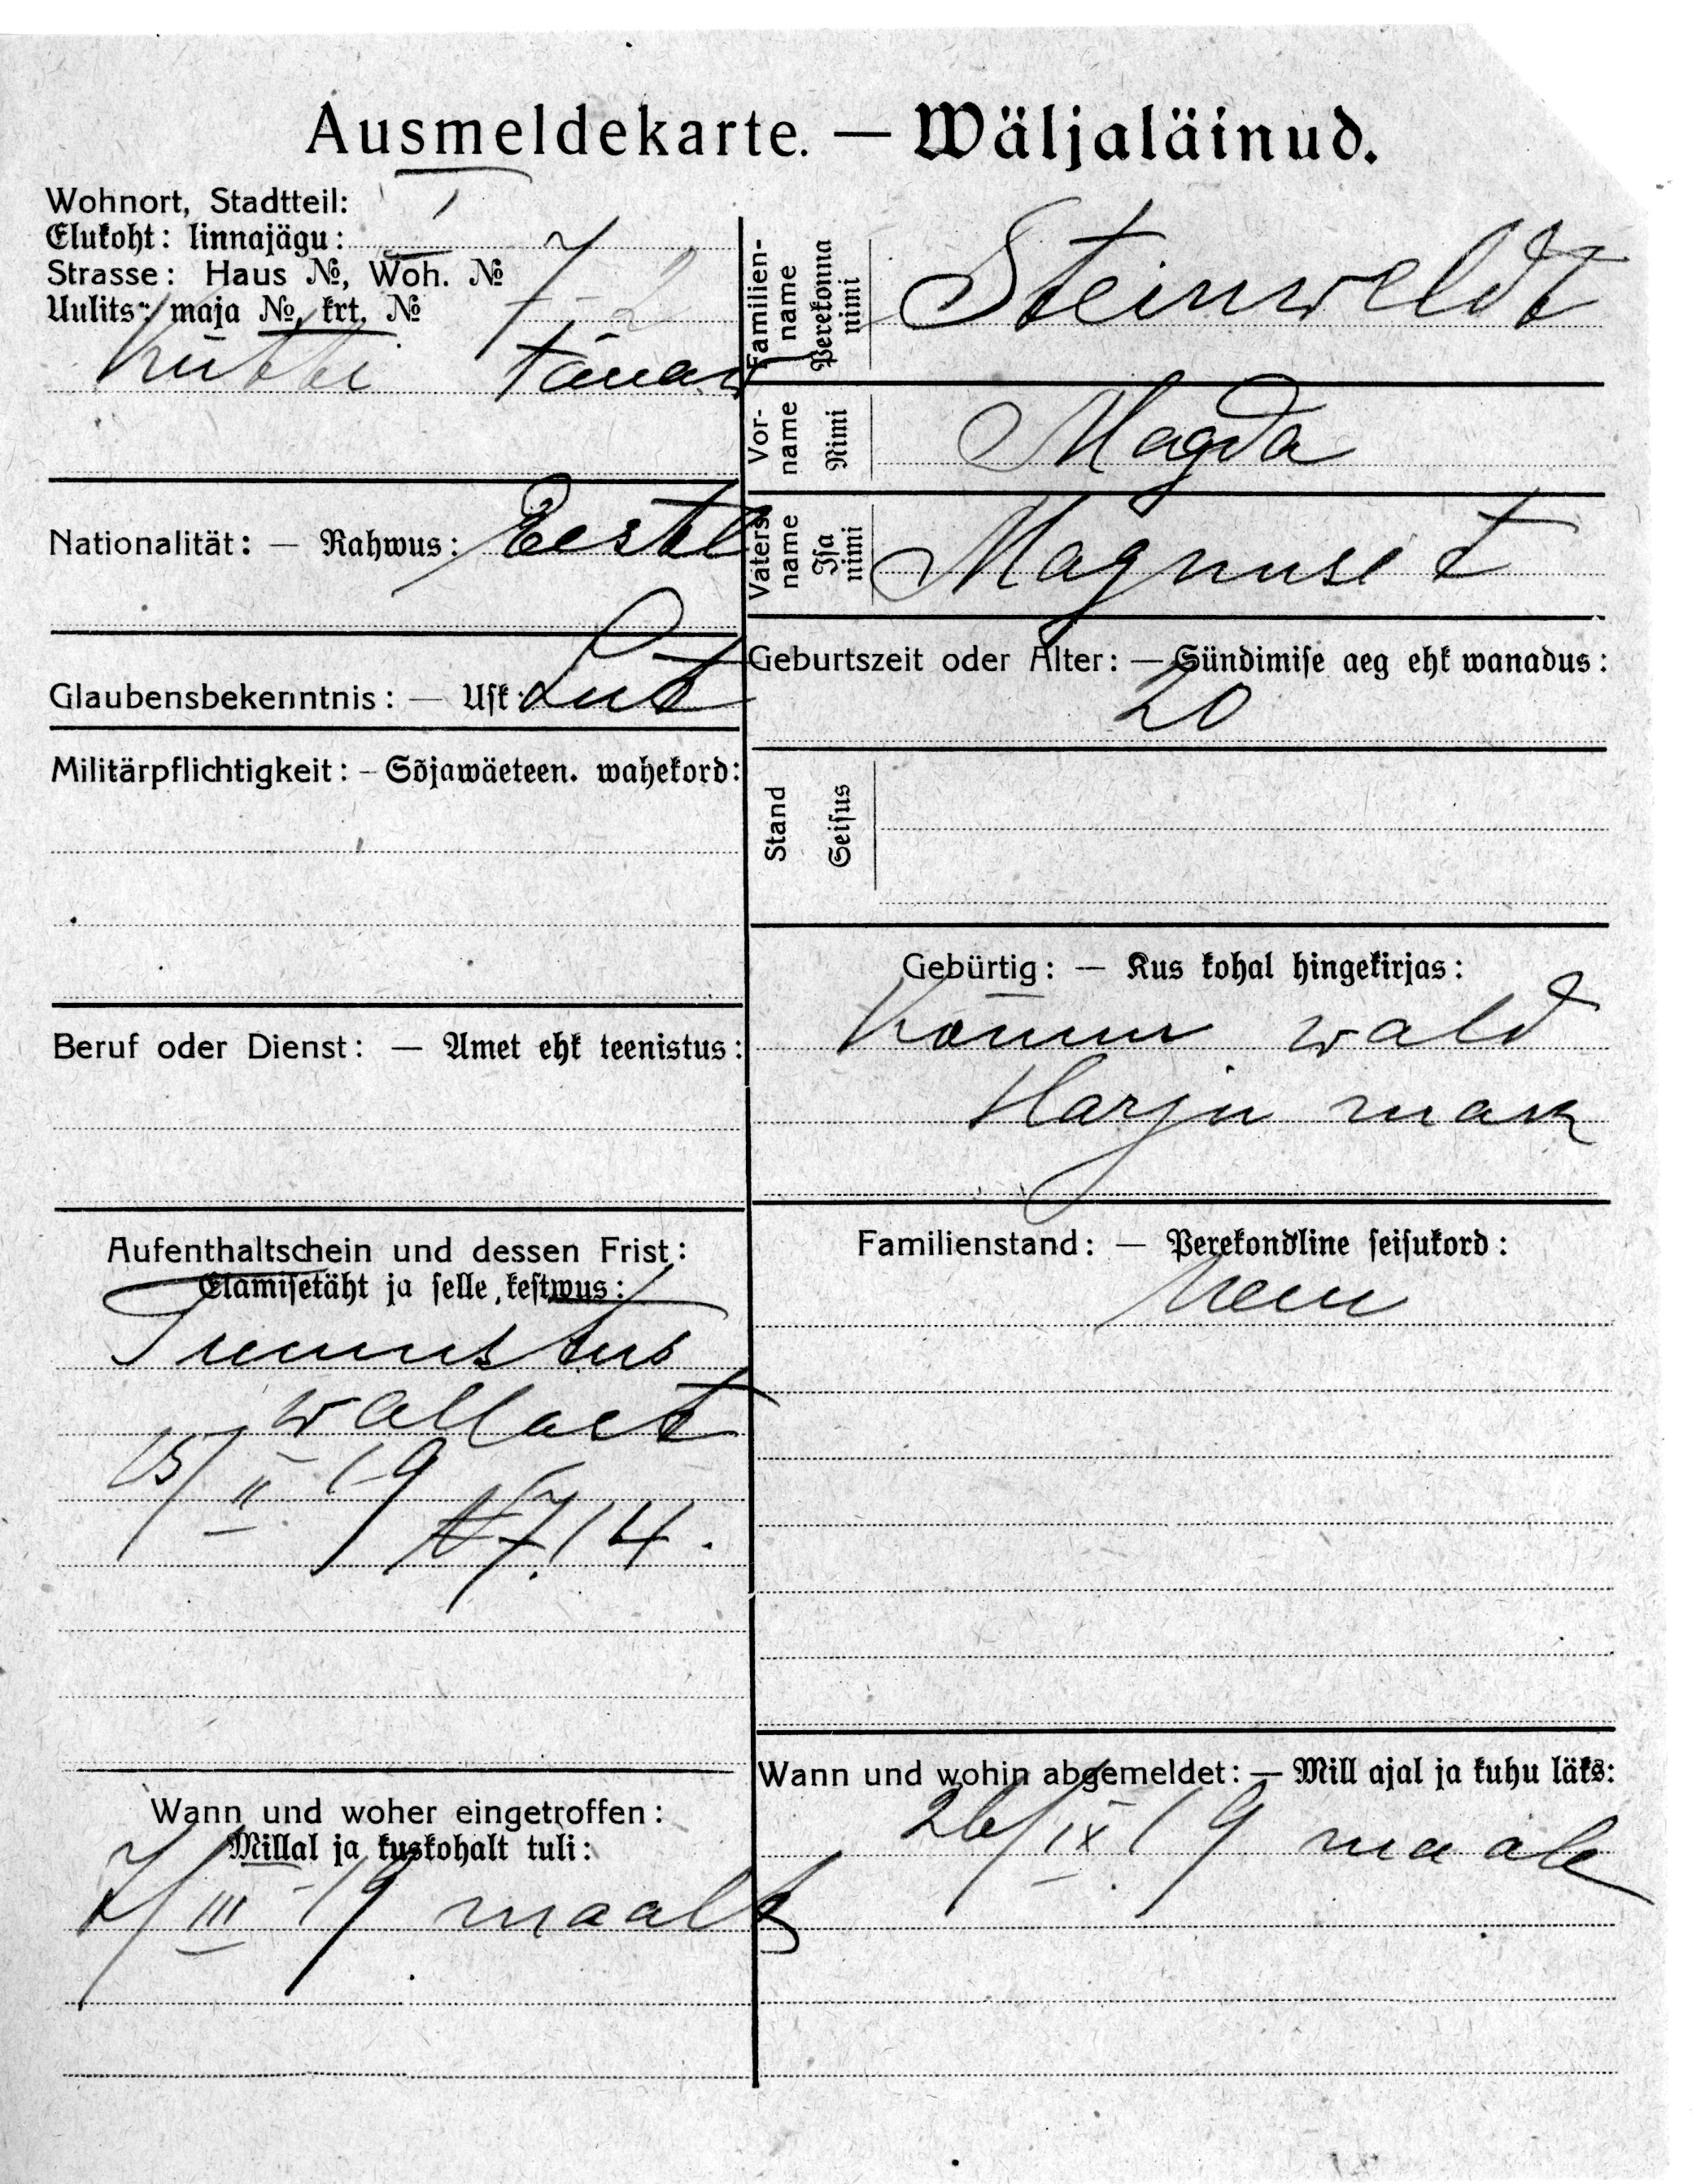 Ausmeldekarte. — Wäljaläinud.
Wohnort, Stadtteil:
Elukoht: linnajägu: I
Strasse: Haus №, Woh. №
Uulits: maja №, krt. № 7-2
Kütti tänaw
Nationalität: — Rahwus: Eestl
Glaubensbekenntnis: — Usk: Lut
Militärpflichtigkeit: - Sõjawäeteen. wahekord:
Beruf oder Dienst: — Amet ehk teenistus:
Aufenthaltschein und dessen Frist:
Elamisetäht ja selle kestwus:
Tunnistus
wallast
15/II 19
№ 714.
Wann und woher eingetroffen:
Millal ja kuskohalt tuli:
7/III-19 maalt
Familien-
name
Perekonna
nimi
Steinweldt
Vor-
name
Nimi
Magda
Vaters
name
Isa
nimi
Magnuse t
Geburtszeit oder Alter: — Sündimise aeg ehk wanadus:
20
Stand
Seisus
Gebürtig: — Kus kohal hingekirjas:
wald
Harju maa
Familienstand: — Perekondline seisukord:
Wann und wohin abgemeldet: — Mill ajal ja kuhu läks:
26/IX 19 maale